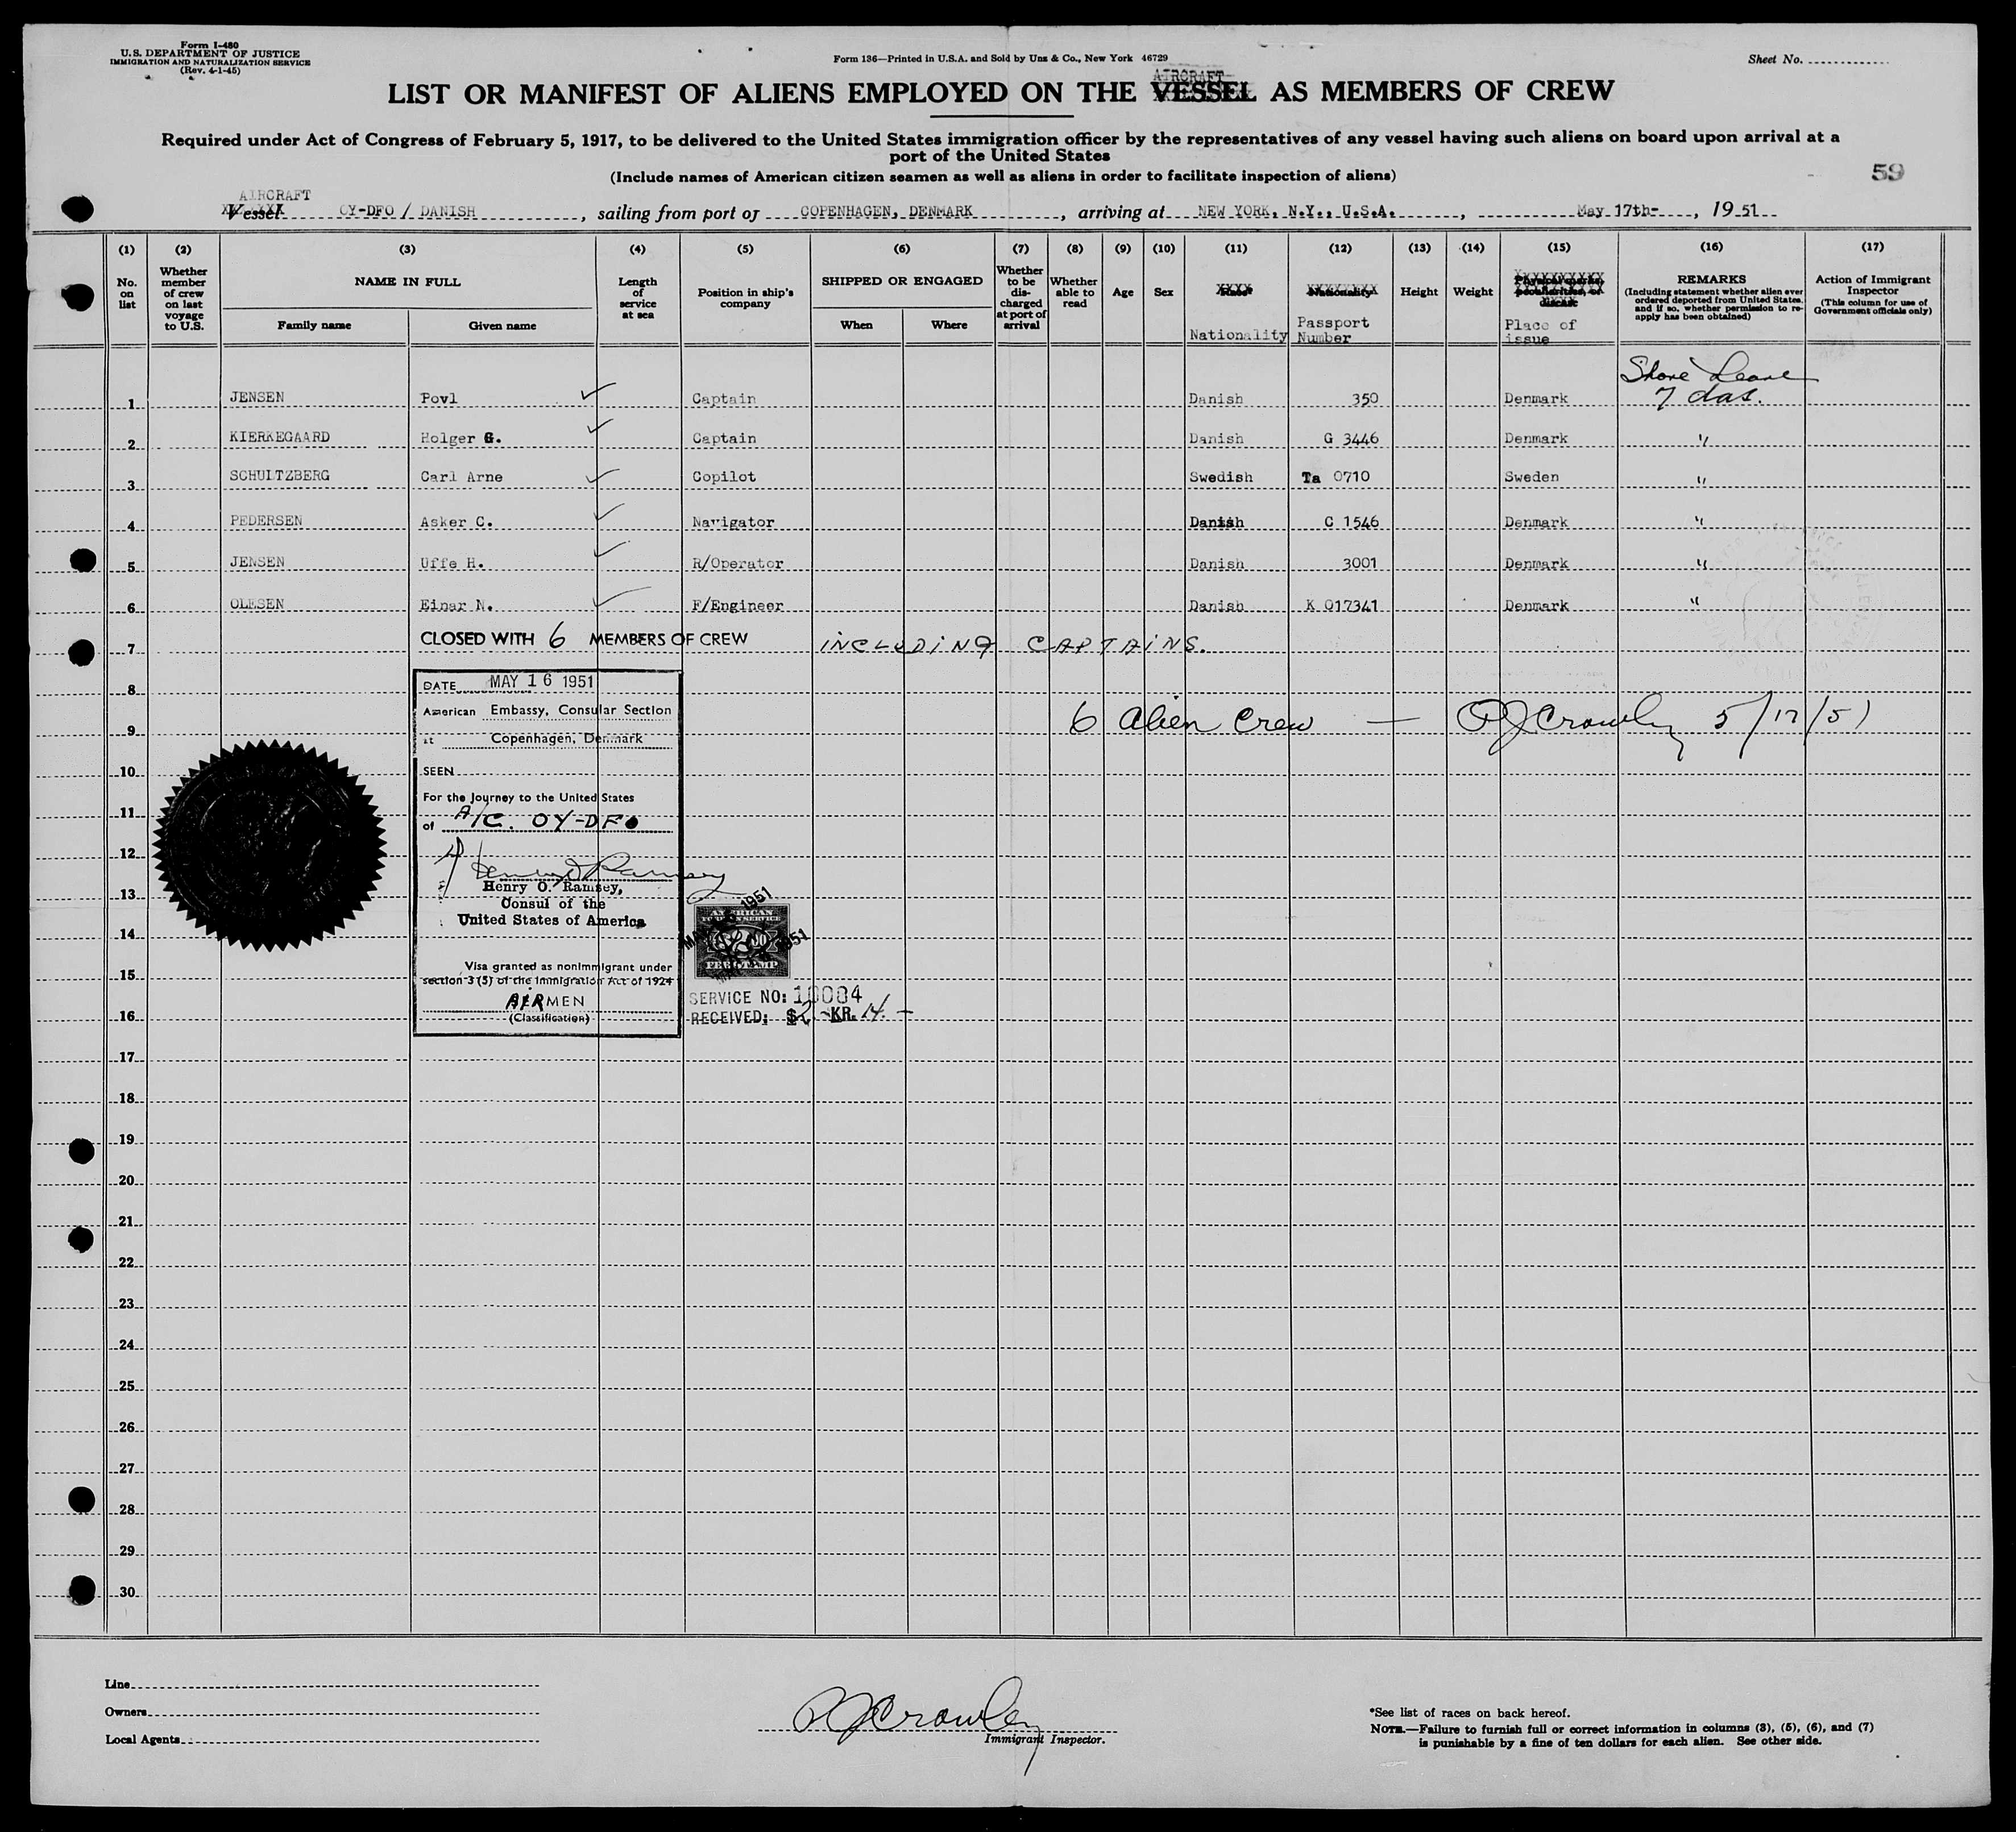 Form I-480
U.S. DEPARTMENT OF JUSTICE
IMMIGRATION AND NATURALIZATION SERVICE
(Rev. 4-1-45)
Form 136—Printed in U.S.A. and Sold by Unz & Co., New York 46729
Sheet No.
AIRCRAFT
LIST OR MANIFEST OF ALIENS EMPLOYED ON THE VESSEL AS MEMBERS OF CREW
Required under Act of Congress of February 5, 1917, to be delivered to the United States immigration officer by the representatives of any vessel having such aliens on board upon arrival at a
port of the United States
(Include names of American citizen seamen as well as aliens in order to facilitate inspection of aliens)
59
AIRCRAFT
Vessel OY-DFO / DANISH, sailing from port of COPENHAGEN, DENMARK, arriving at NEW YORK, N.Y., U.S.A., May 17th-, 1951
(1) (2) (3) (4) (5) (6) (7) (8) (9) (10) (11) (12) (13) (14) (15) (16) (17)
No. on list
Whether member of crew on last voyage to U.S.
NAME IN FULL
Family name Given name
Length of service at sea
Position in ship's company
SHIPPED OR ENGAGED
When Where
Whether to be discharged at port of arrival
Whether able to read
Age
Sex
Race*
Nationality
Nationality
Passport Number
Height
Weight
Physical marks, peculiarities, or disease
Place of issue
REMARKS
(Including statement whether alien ever ordered deported from United States, and if so, whether permission to re-apply has been obtained)
Action of Immigrant Inspector
(This column for use of Government officials only)
Shore Leave
1 JENSEN Povl Captain Danish 350 Denmark 7 das.
2 KIERKEGAARD Holger G. Captain Danish G 3446 Denmark "
3 SCHULTZBERG Carl Arne Copilot Swedish Ta 0710 Sweden "
4 PEDERSEN Asker C. Navigator Danish C 1546 Denmark "
5 JENSEN Uffe H. R/Operator Danish 3001 Denmark "
6 OLESEN Einar N. F/Engineer Danish K 017341 Denmark "
7 CLOSED WITH 6 MEMBERS OF CREW INCLUDING CAPTAINS.
8
DATE MAY 16 1951
American Embassy, Consular Section
9
6 Alien Crew — PJ Crowley 5/17/51
at Copenhagen, Denmark
10
SEEN
For the Journey to the United States
11
of A/C. OY-DFO
12
Henry O. Ramsey
13
Henry O. Ramsey,
Consul of the
United States of America
14
MAY 1951
AMERICAN
FOREIGN SERVICE
FEE STAMP
15
Visa granted as nonimmigrant under
section 3 (5) of the Immigration Act of 1924
AIRMEN
(Classification)
SERVICE NO: 10084
16
RECEIVED: $2.- KR. 14.-
17
18
19
20
21
22
23
24
25
26
27
28
29
30
Line
Owners
Local Agents
PJ Crowley
Immigrant Inspector.
*See list of races on back hereof.
NOTE.—Failure to furnish full or correct information in columns (3), (5), (6), and (7)
is punishable by a fine of ten dollars for each alien. See other side.